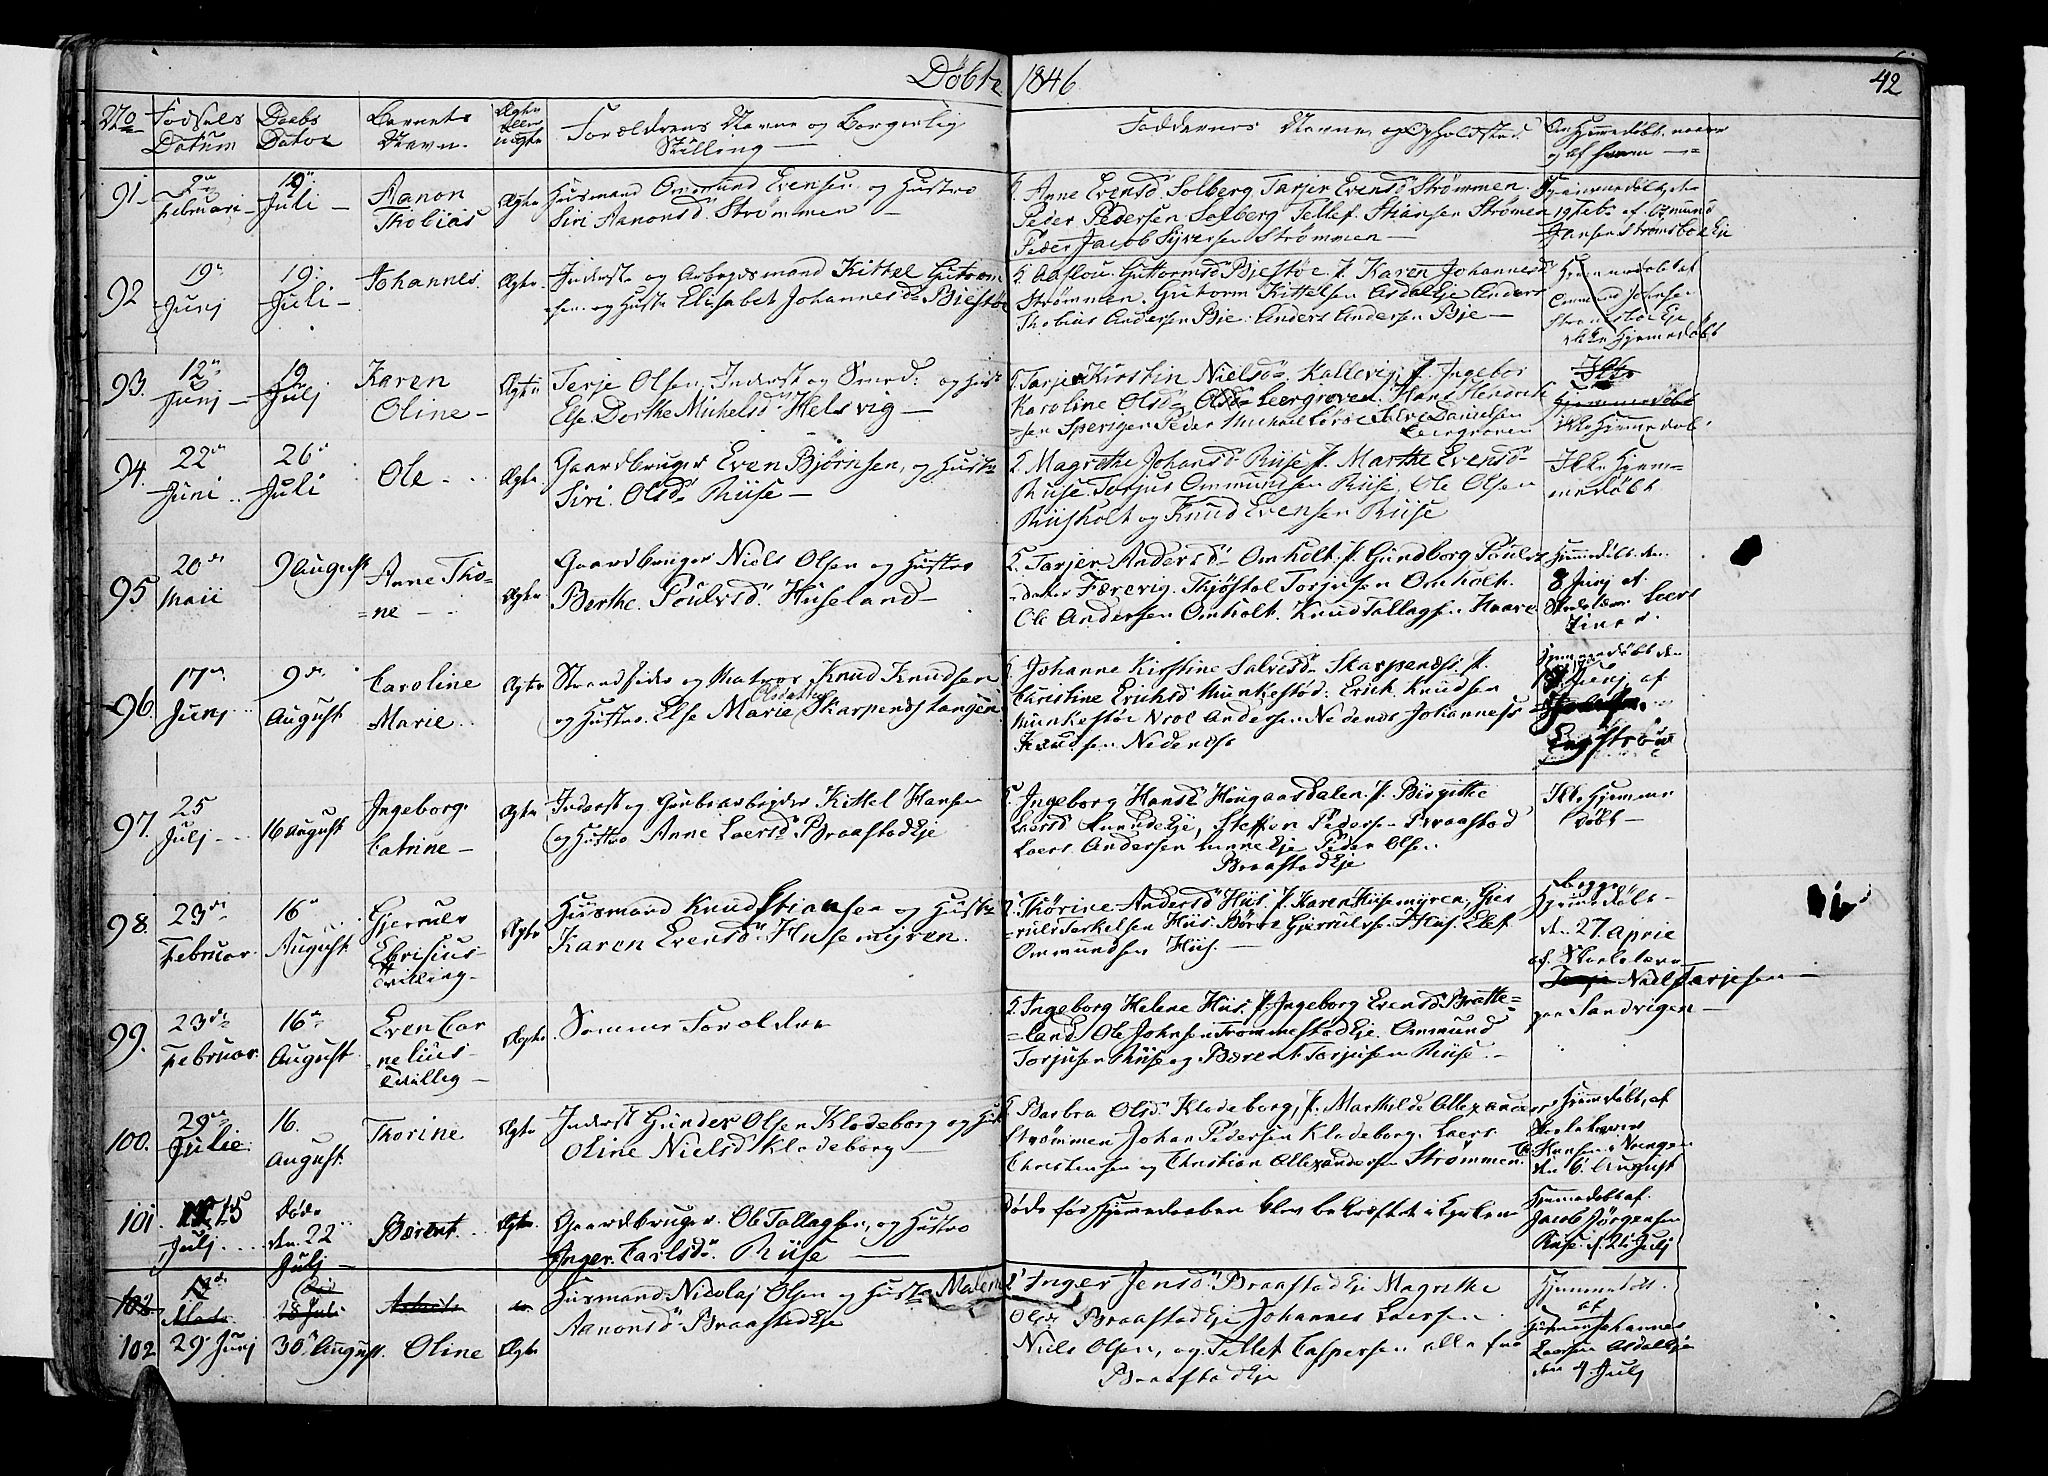 Döbte 1846
42
No
Fødsels Datum
Daabs Datoe
Barnets Navn
Ægte eller uægte
Forældrens Navne og Borgerlig Stilling
Faddernes Navne, og Opholdsted
Om Hjemmedøbt, naar og af hvem
91
2den Februari
19 Juli
Aanon Thobias
Ægte
Husmand Ommund Evensen og Hustro
Siri Aanonsd Strømmen
Anne Evensd Solberg Tarjer Evensd Strømmen
Peder Pedersen Solberg Tellef Stiansen Strömen
Peder Jacob Syversen Strømmen
19 Febr af Omund
Jansen Strømsboe Eje
92
19 Junj
19 Juli
Johannes
Ægte
Inderst og Arbejdsmand Kittel Gutrom
sen og Hustr Elisabet Johannesd Bjestöe
Aaslou Guttormsd Bjestöe p. Karen Johannesd
Strømmen. Gutorm Kittelsen Asdal Eje Anders
Thobias Andersen Bie. Anders Andersen Bje
Hjemmedøbt af
Ommund Johnsen
Strømsboe Eje
ikke Hjemedøbt
93
12 Junj
19 Julj
Karen Oline
Ægte
Terje Olsen, Inderst og Smed og Hust
Else Dorthe Michelsd Helsvig
Tarjer Kirstin Nielsd Kallevig p. Ingebor
Karoline Olsd Leergroven. Hans Hendrik
sen Peder Michael Daniellsen
Leergroven
Ikke
Hjemmedøbt
ikke Hjemmedøbt
94
22 Juni
26 Juli
Ole
Ægte
Gaardbruger Even Björnsen, og Hustr
Siri Olsd Riise
Magrethe Johansd Riise p. Marthe Evensd
Riise Torjus Ommundsen Riise, Ole Olsen
Riisholt og Knud Evensen Riise
Ikke Hjem
medøbt
95
20 Maii
9 August
Anne Tho
ne
Ægte
Gaardbruger Niels Olsen og Hustro
Berthe Poulsd Huseland
Tarjer Andersd Omholt p. Gundborg Pouls
datter Færevig. Thjøstol Torjusen Omholt.
Ole Andersen Omholt. Knud Tallagsen Haave
Hjemmedøbt den
8 Junj af
Skolelærer Lars
96
17 Junj
9 August
Caroline Marie
Ægte
Strandsider og Matros Knud Knudsen
og Hustro Else Marie Olsdatter Skarpenæs tangen
Johanne Kirstine Salvesd Skarpenæs p.
Christine Erichsd Munkestöe: Erich Knudsen
Munkestöe Nroe Andersen Nedenæs Johannes
Knudsen Nedenæs
Hjemmedøbt den
Junj af
Engström
97
25 Julj
16 August
Ingeborg Catrine
Ægte
Inderst og Grubearbejder Kittel Hansen
og Hustro Anne Laersd Braastad Eje
Ingeborg Hansd Hougaasdalen p. Birgithe
Laersd Eje, Steffen Pedersen Braastad
Laers Andersen Eje Peder Olsen
Braastad Eje
Ikke Hjemme
döbt
98
23 Februar
16 August
Gjeruls Chrisius Tvilling
Ægte
Husmand Knud Stiansen og Hustr
Karen Evensd Husemyren
Thørine Andersd Hüs. p. Karen Husemyren, Gje
ruls Terkelsen Hüs. Börre Gjerulfsen Hüs. Elef
Ommundsen Hüs.
begge
Hjemmedøbt
den 27 Aprie
af Skolelærer
Niels Tarjesen
paa Sandvigen
99
23 Februar
16 August
Even Cor
nelius
Tvilling
Ægte
Samme Forældre
Ingeborg Helene Hüs. p. Ingeborg Evensd Bratte
land Ole Johnsen Trommestad Eje Ommund
Torjusen Riise og Bærent Torjusen Riise
100
29 Julie
16 August
Thorine
Ægte
Inderst Gunder Olsen Klodeborg og Hust
Oline Nielsd Klodeborg
Barbra Olsd Klodeborg, p. Mathilde Allexander
Strømmen Johan Pedersen Klodeborg. Laers
Christensen og Christian Allexandersen Strømmen
Hjemmedøbt, af
Skolelærer
Hansen i Nængen
den 6 August
101
15 Julj
Døde den 22 Julj
Bærent
Ægte
Gaardbruger. Ole Tallagsen, og Hustro
Inger Carlsd Riise
Döde før Hjemmedaaben blev bekræftet i Kirken
Hjemmedøbt af
Jacob Jörgensen
Riise d. 21 Julj
102
18 Juli
102
29 Junj
30 August
Oline
Ægte
Husmand Nicolaj Olsen og Hustr Malene
Aanonsd Braastad Eje
Inger Jensd Braastad Eje Magrethe
Olsd Braastad Eje Johannes Laersen
Niels Olsen, og Tellef Caspersen alle fra
Braastad Eje
Hjemmedøbt
af
Johannes
Laersen Asdal Eje
den 4 Julj